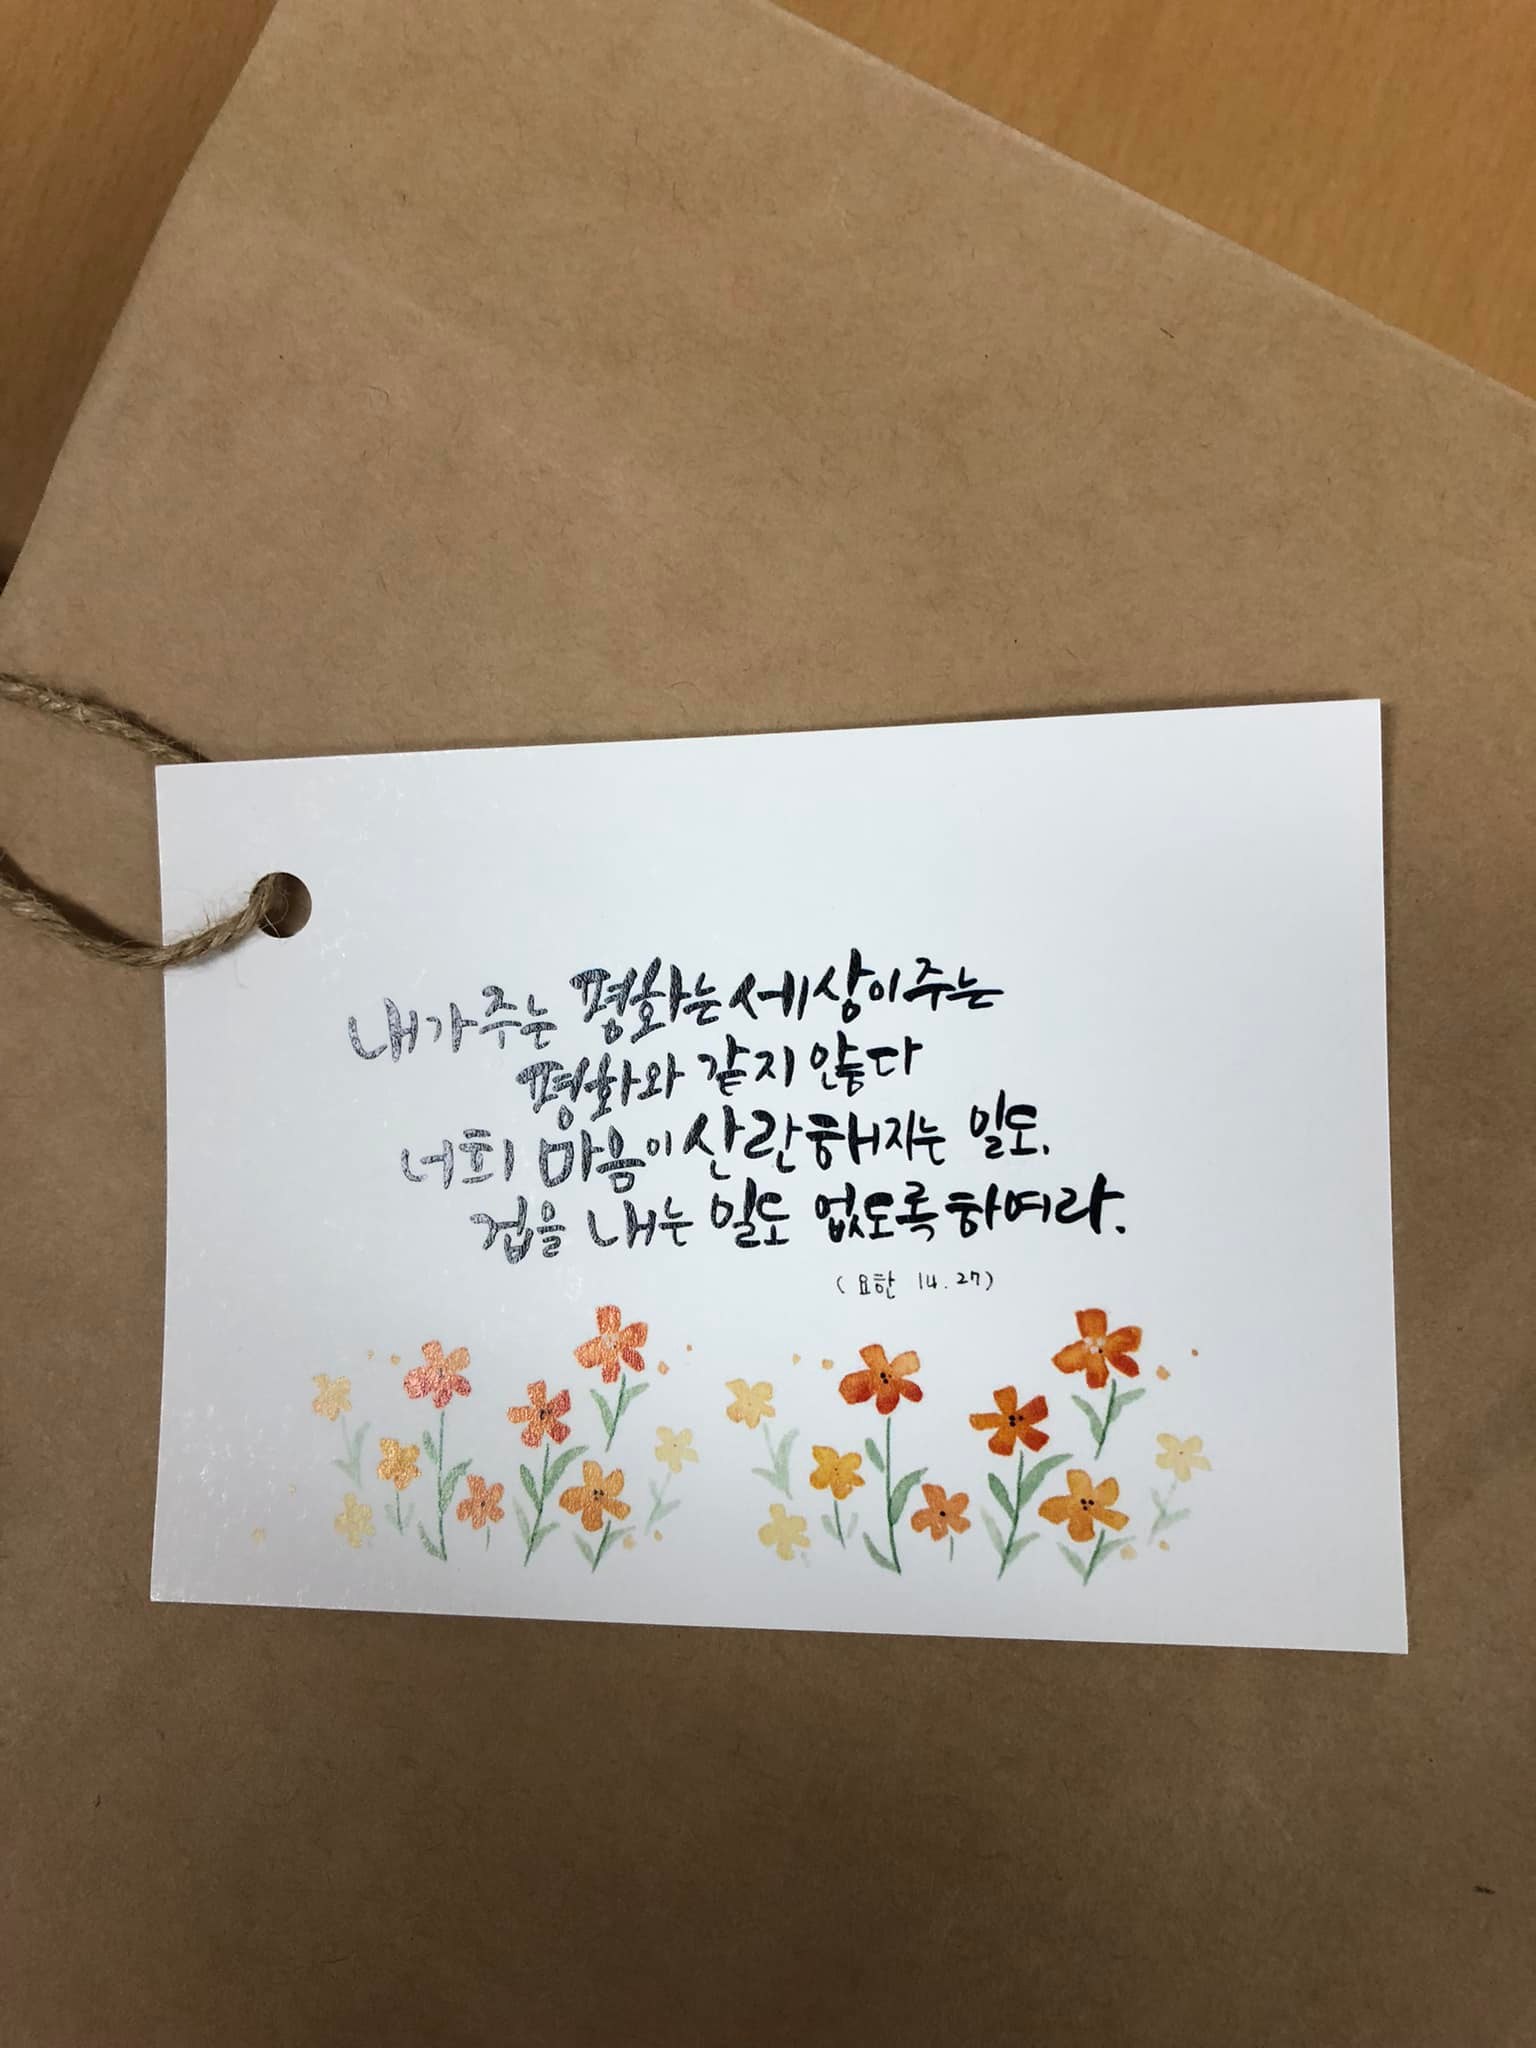 내가 주는 평화는 세상이 주는
평화와 같지 않다
너희 마음이 산란해지는 일도,
겁을 내는 일도 없도록 하여라.
(요한 14. 27)